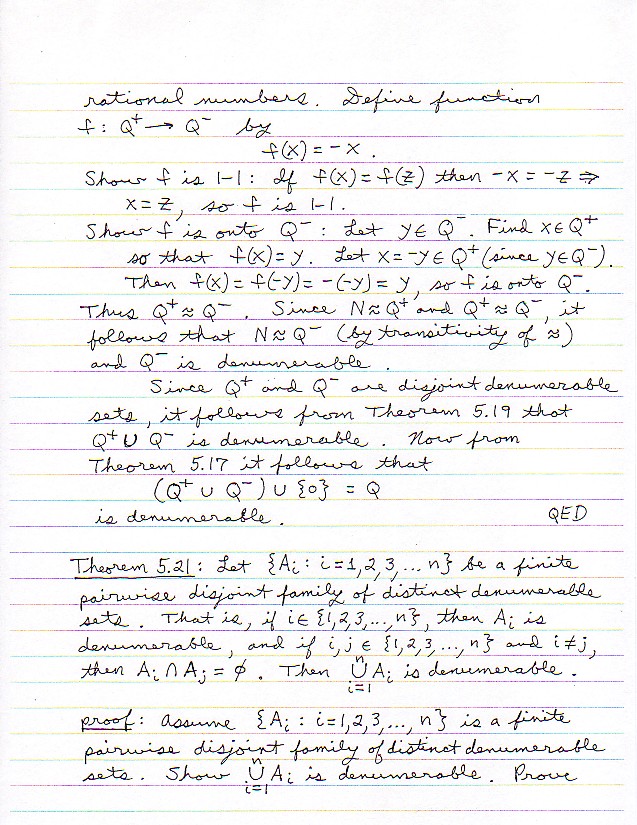 rational numbers. Define function
f: Q⁺ → Q⁻ by
f(x) = -x.
Show f is 1-1: If f(x) = f(z) then -x = -z ⇒
x = z, so f is 1-1.
Show f is onto Q⁻: Let y ∈ Q⁻. Find x ∈ Q⁺
so that f(x) = y. Let x = -y ∈ Q⁺ (since y ∈ Q⁻).
Then f(x) = f(-y) = -(-y) = y, so f is onto Q⁻.
Thus Q⁺ ≈ Q⁻. Since N ≈ Q⁺ and Q⁺ ≈ Q⁻, it
follows that N ≈ Q⁻ (by transitivity of ≈)
and Q⁻ is denumerable.
Since Q⁺ and Q⁻ are disjoint denumerable
sets, it follows from Theorem 5.19 that
Q⁺ ∪ Q⁻ is denumerable. Now from
Theorem 5.17 it follows that
(Q⁺ ∪ Q⁻) ∪ {0} = Q
is denumerable. QED
Theorem 5.21: Let {Aᵢ : i=1,2,3,...n} be a finite
pairwise disjoint family of distinct denumerable
sets. That is, if i ∈ {1,2,3,...,n}, then Aᵢ is
denumerable, and if i, j ∈ {1,2,3,...,n} and i ≠ j,
then Aᵢ ∩ Aⱼ = ∅. Then ⋃ⁿᵢ₌₁ Aᵢ is denumerable.
proof: Assume {Aᵢ : i=1,2,3,...,n} is a finite
pairwise disjoint family of distinct denumerable
sets. Show ⋃ⁿᵢ₌₁ Aᵢ is denumerable. Prove